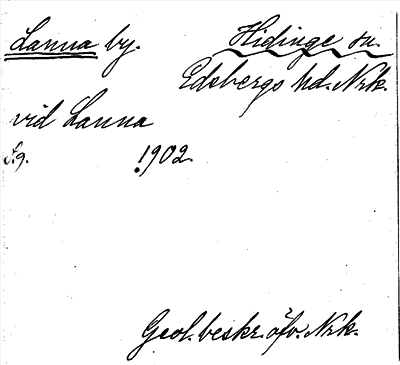 Lanna by. Hidinge sn.
Edsbergs hd. Nrk.
vid Lanna
f.g. 1902.
Geol. beskr. öfv. Nrk.